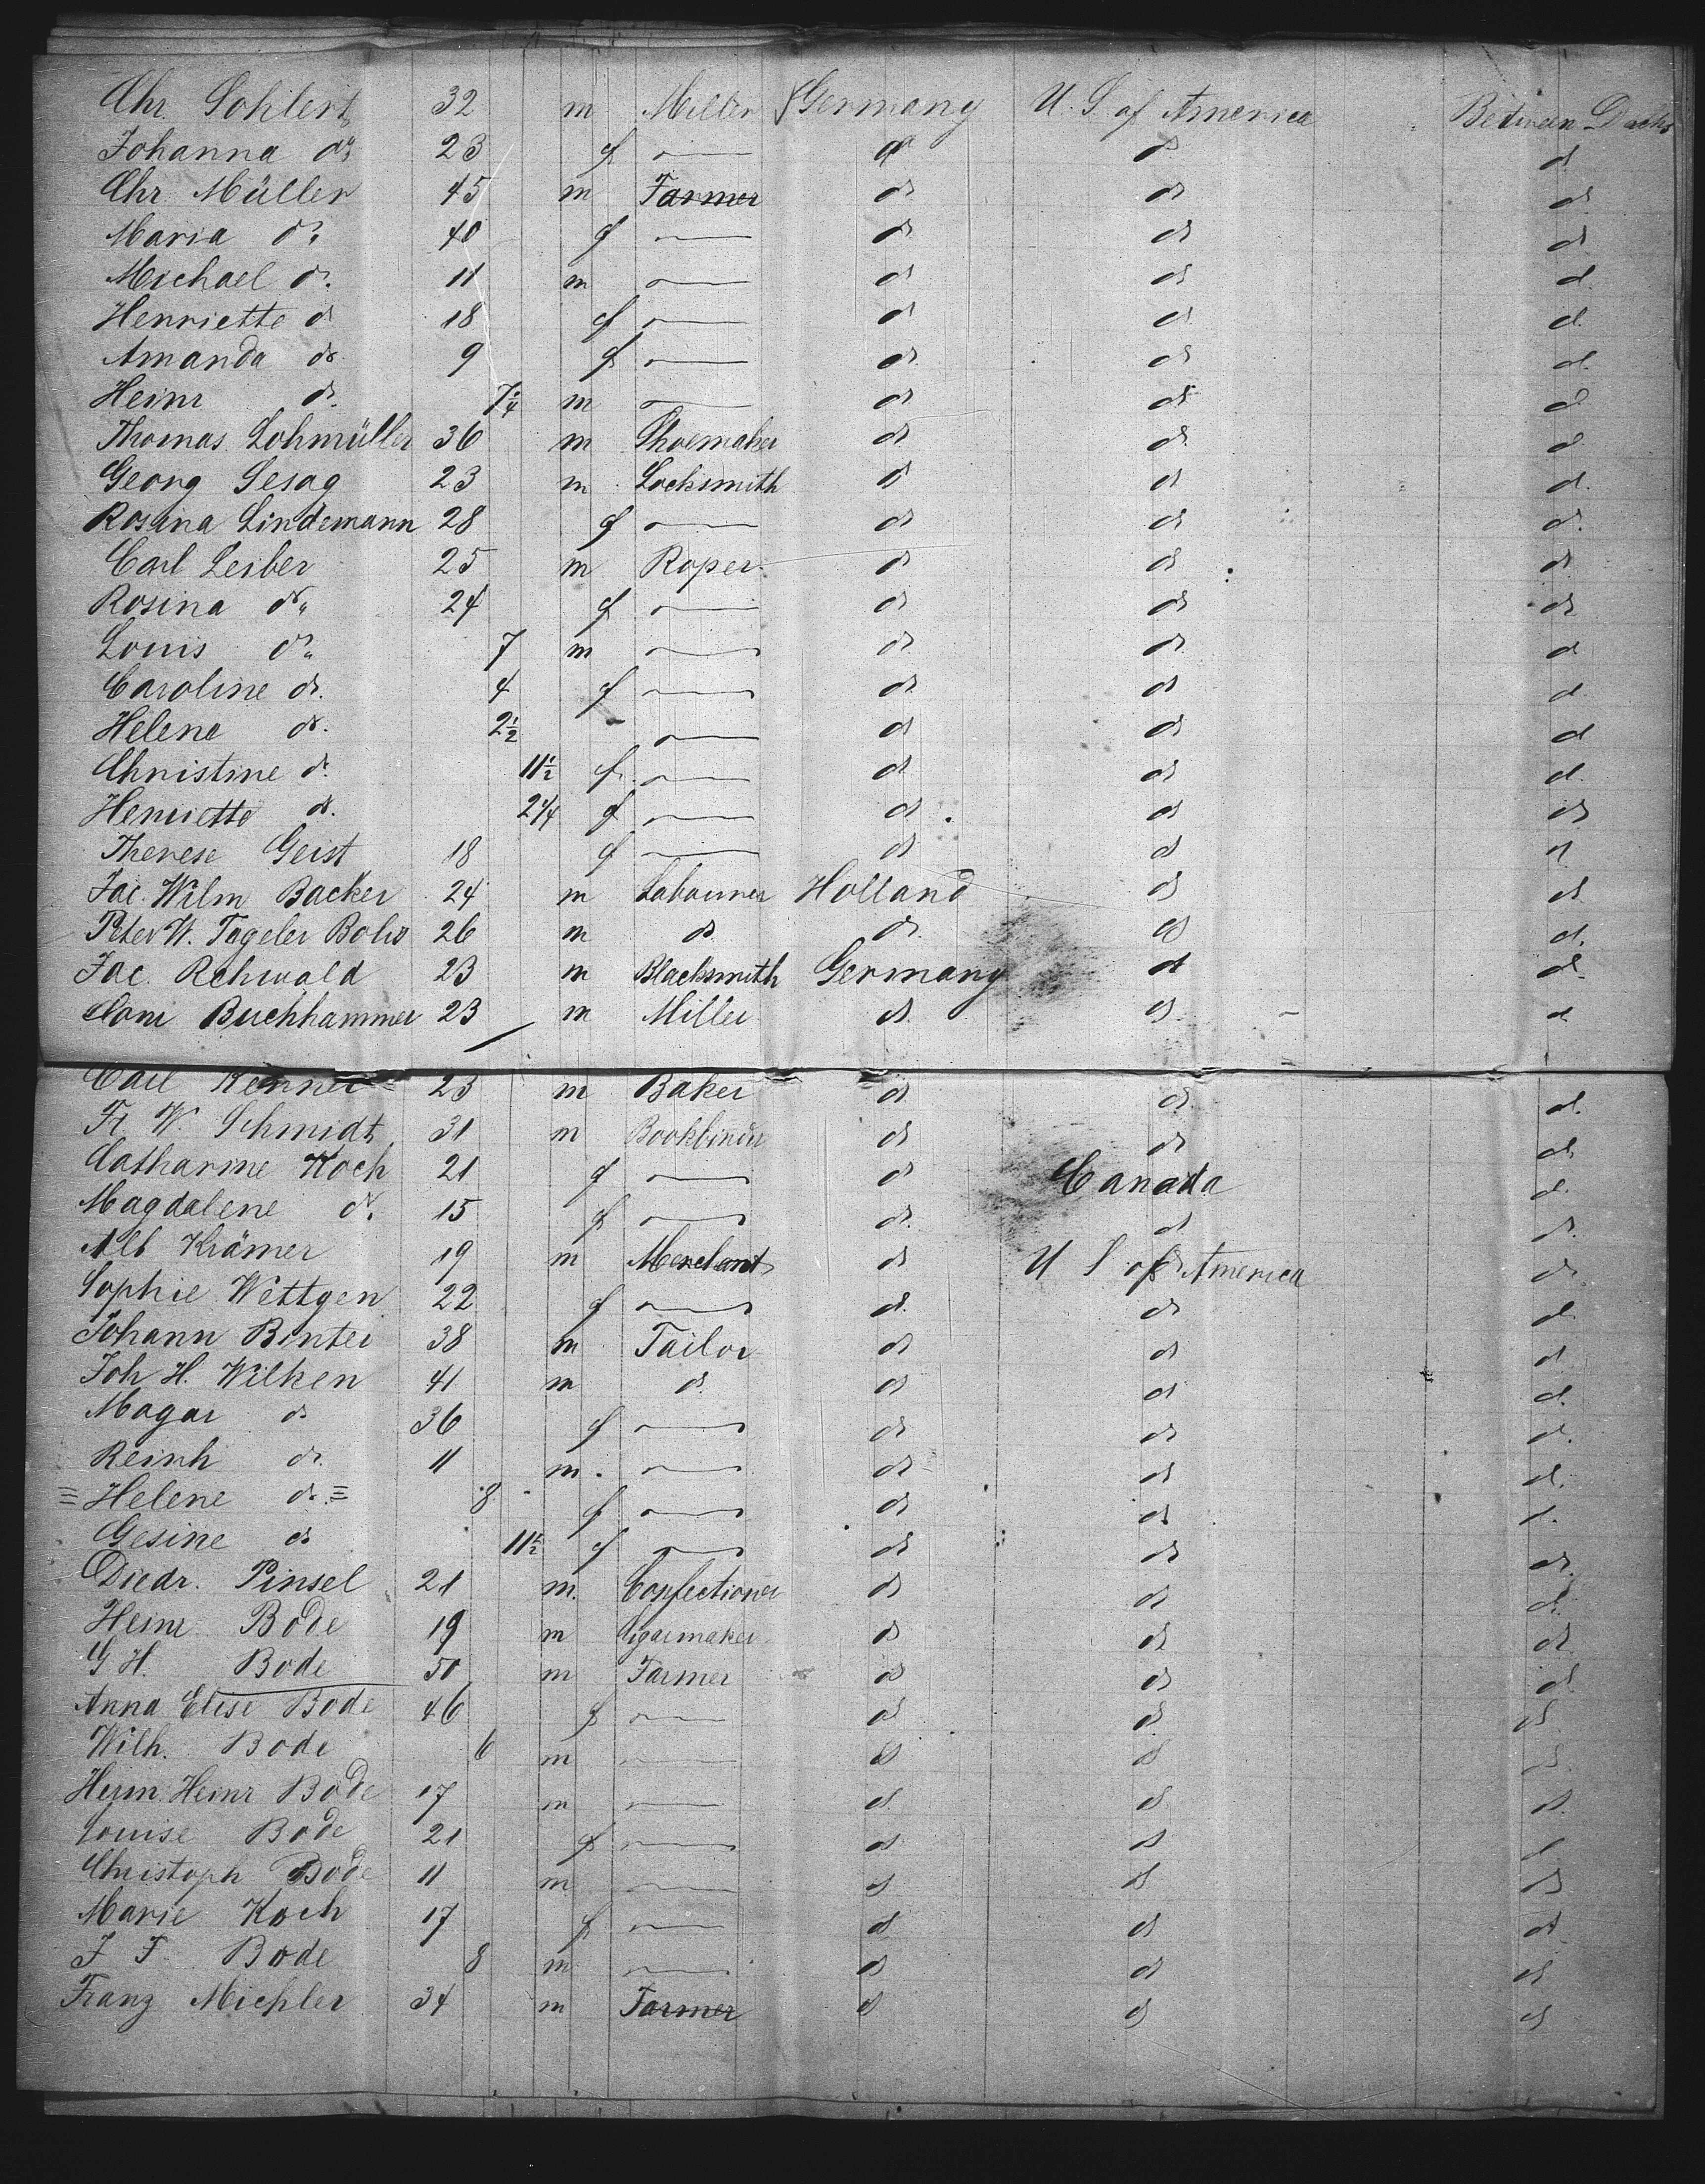 Chr. Sohlert 32 m Miller Germany U. S. of America Between Decks
Johanna do 23 f — do do d
Chr Müller 45 m Farmer do do do
Maria do 40 f — do do do
Michael do. 11 m — do do d.
Henriette do 18 f — do do d.
Amanda do. 9 f — do do d.
Heinr do. m — do do d
Thomas Lohmüller 36 m Shoemaker do do d
Georg Sesag 23 m Locksmith do do d.
Rosina Lindemann 28 f — do do d.
Carl Leiber 25 m Roper do do do
Rosina do 24 f — do do do
Louis do 7 m — do do d
Caroline do. 4 f — do do d.
Helene do. 2½ — do do d
Christine do. 11½ f. — do do d.
Henriette do. f — do do do
Therese Geist 18 f — do do d
Jac. Wilm Backer 24 m Labourer Holland do d.
Peter W. Tegeler Bolw 26 m do do. do d.
Jac. Rehwald 23 m Blacksmith Germany do d
Buchhammer 23 m Miller do do d
Carl Renner 23 m Baker do do d.
Fr W. Schmidt 31 m Bookbinder do do d.
Catharine Koch 21 f — do Canada d.
Magdalene do. 15 f — do. do d.
Alb Krämer 19 m Merchant do U S of America do
Sophie Wettgen 22 f — do. do d.
Johann Binter 38 m Tailor do do d
Joh H. Wilken 41 m do. do do d.
Magar do 36 f — do do d.
Reinh do. 11 m. — do do d.
Helene do. 8 f — do do d.
Gesine do 11½ f — do do do.
Diedr. Pinsel 21 m. Confectioner do do d.
Heinr. Bode 19 m Cigarmaker do do do
G H. Bode 50 m Farmer do do d
Anna Elise Bode 46 f — do do do
Wilh. Bode 6 m — do do do
Herm. Heinr Bode 17 m — do do d.
Louise Bode 21 f — do do d
Christoph Bode 11 m — do do do
Marie Koch 17 f — do do d
J F. Bode 8 m — do do do
Franz Michler 34 m Farmer do do do